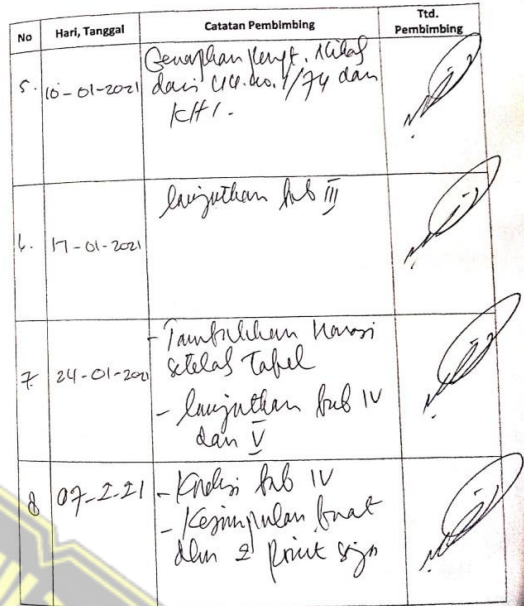 No Hari, Tanggal Catatan Pembimbing Ttd. Pembimbing
5. 10-01-2021
dari UU. No. 1/74 dan
KHI.
6. 17-01-2021 lanjutkan bab III
7. 24-01-2021 - Tambahkan narasi
setelah Tabel
- lanjutkan bab IV
dan V
8 07-2-21 - Koreksi bab IV
- Kesimpulan buat
dlm 2 point